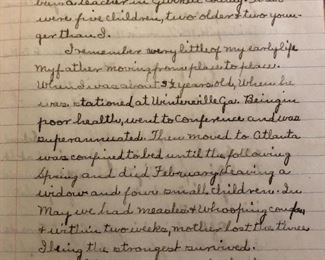 been a teacher in
were five children, two older & two youn-
ger than I.
I remember very little of my early life
my father moving from place to peace.
When I was about 3½ years old, When he
was stationed at Winterville Ga. Being in
poor health, went to Conference and was
superannuated. Then moved to Atlanta
was confined to bed until the following
Spring and died February leaving a
widow and four small children. In
May we had measles & Whooping cough
& within two weeks, mother lost the three
I being the strongest survived.